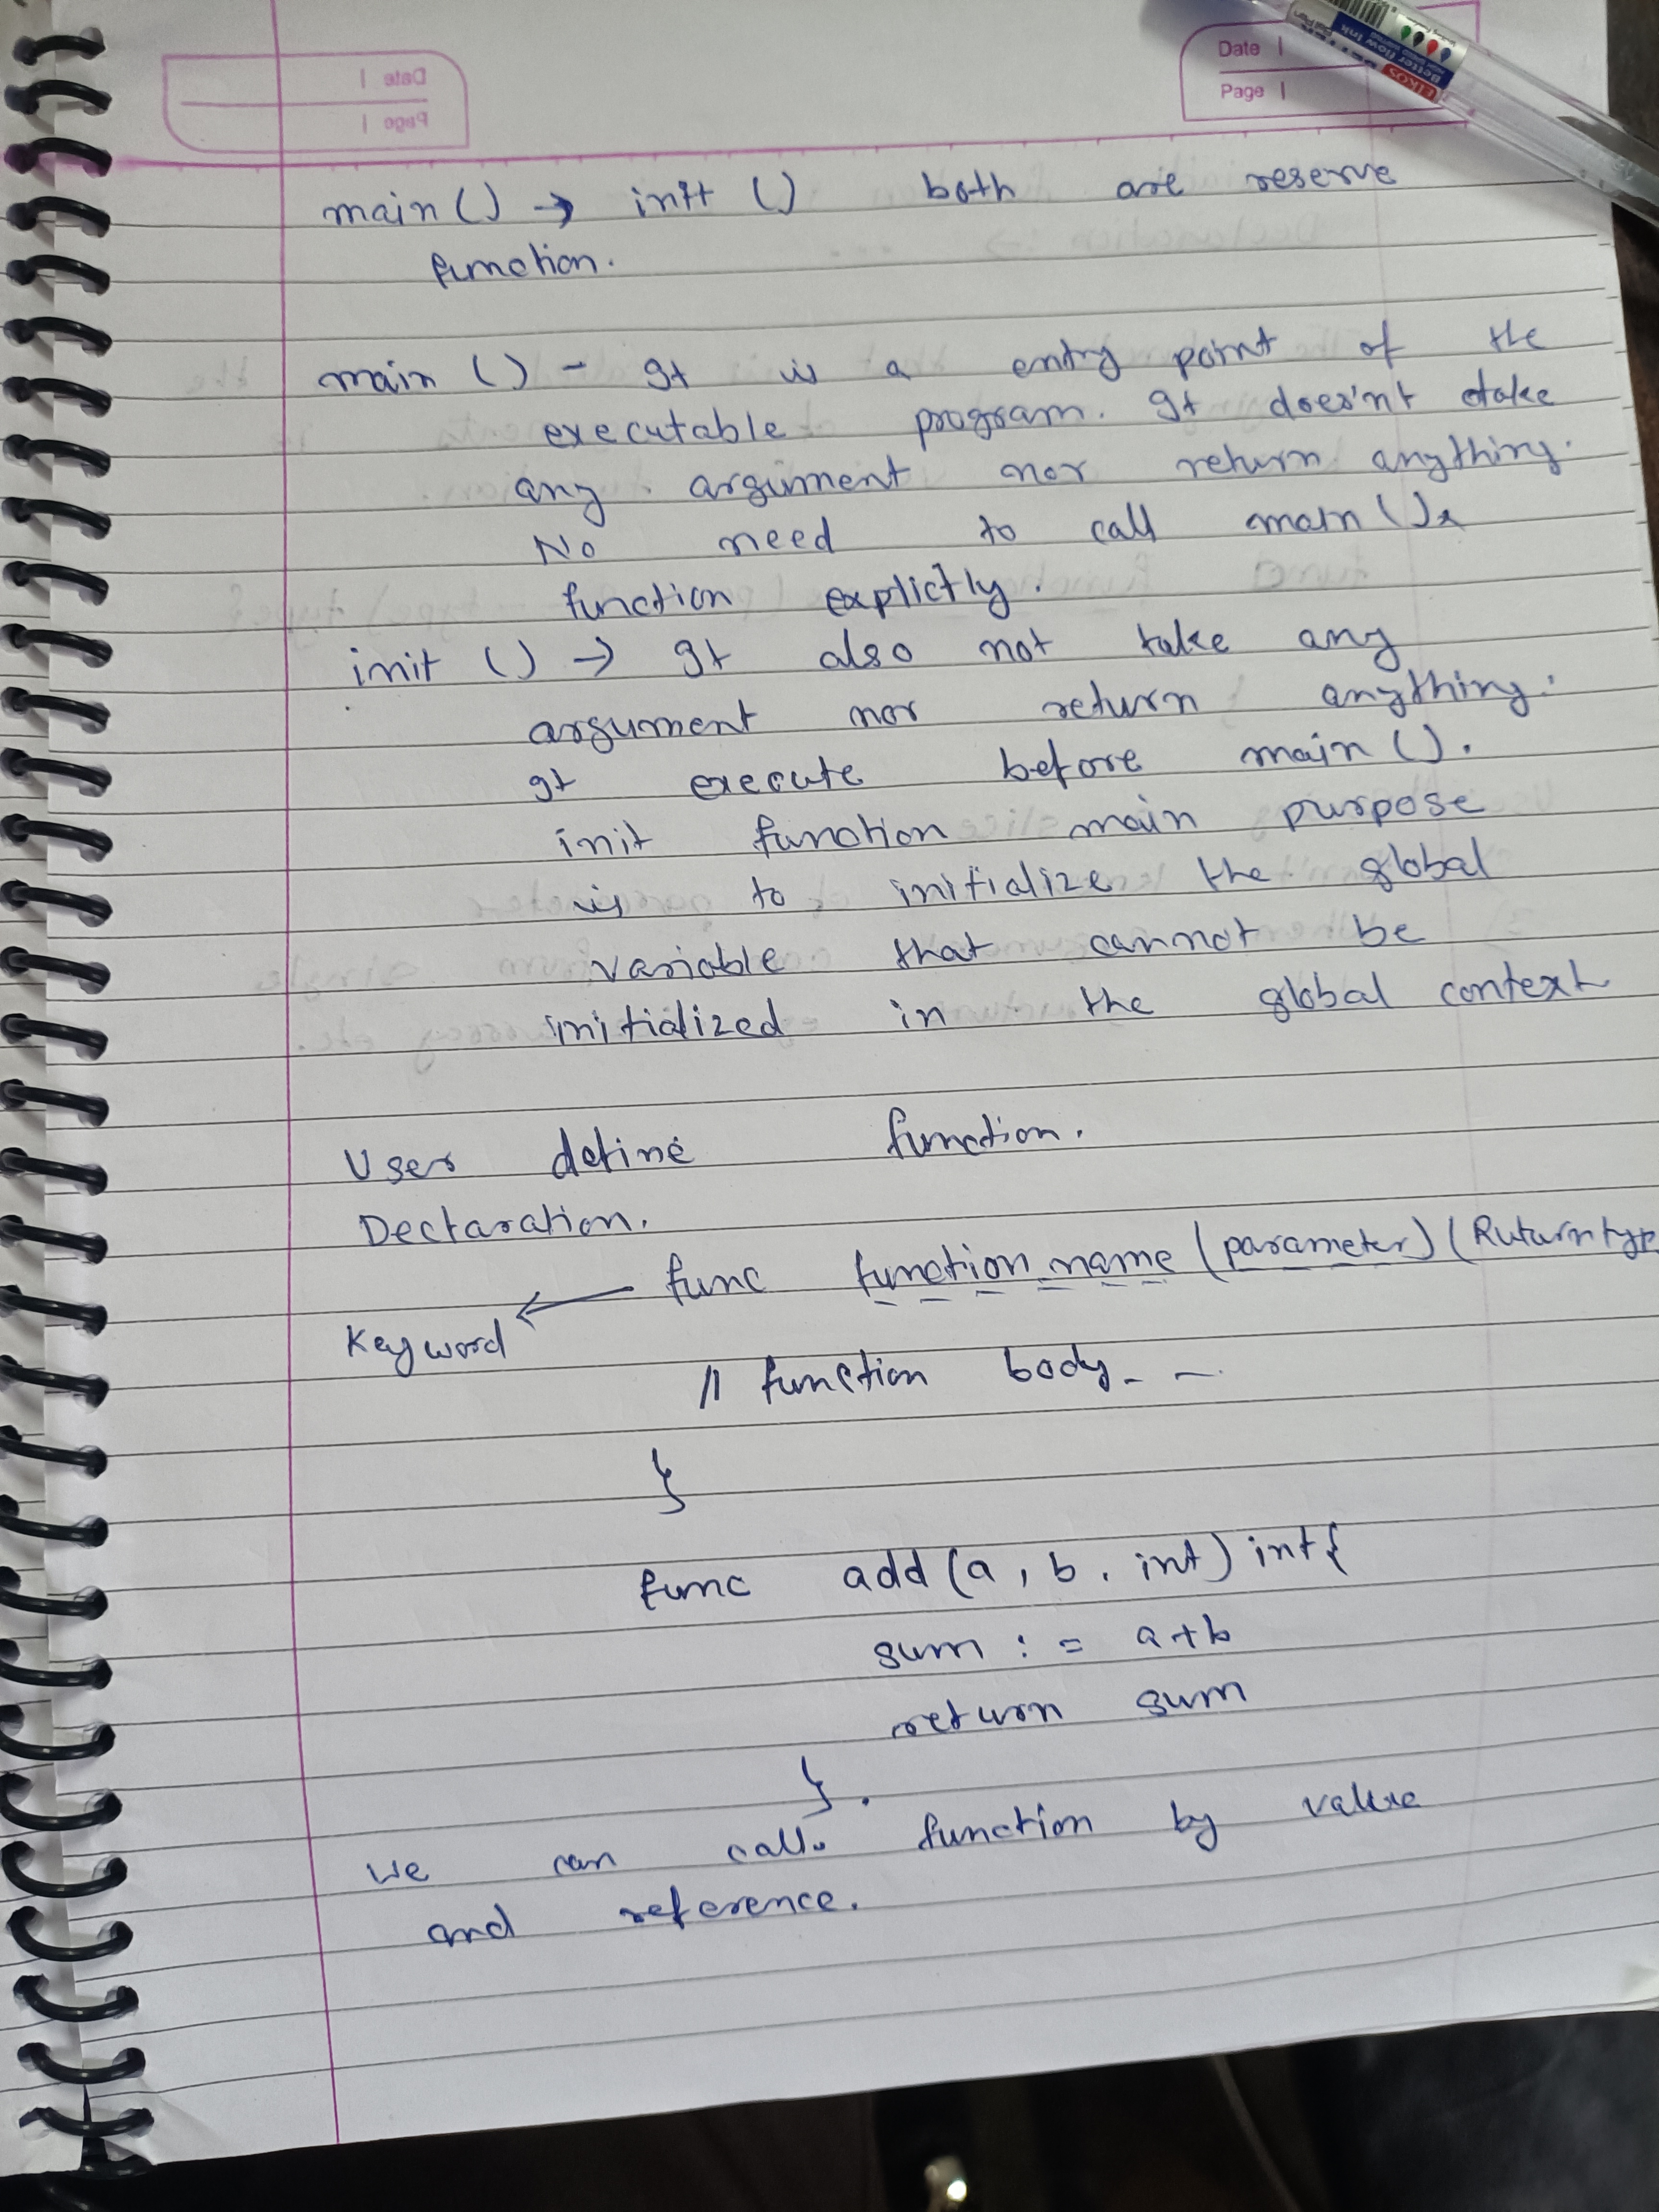 Date
Page
main () → init () both are reserve
function.
main () - It is a entry point of the
executable program. It does'nt take
any argument nor return anything.
No need to call main ()
function explictly.
init () → It also not take any
argument nor return anything.
It execute before main ().
init function main purpose
is to initialize the global
variable that cannot be
initialized in the global context
User define function.
Declaration.
func function name (parameter) (Ruturn typ
Keyword
// function body - -
}
func add (a, b, int) int {
sum := a+b
return sum
}.
we can call function by value
and reference.